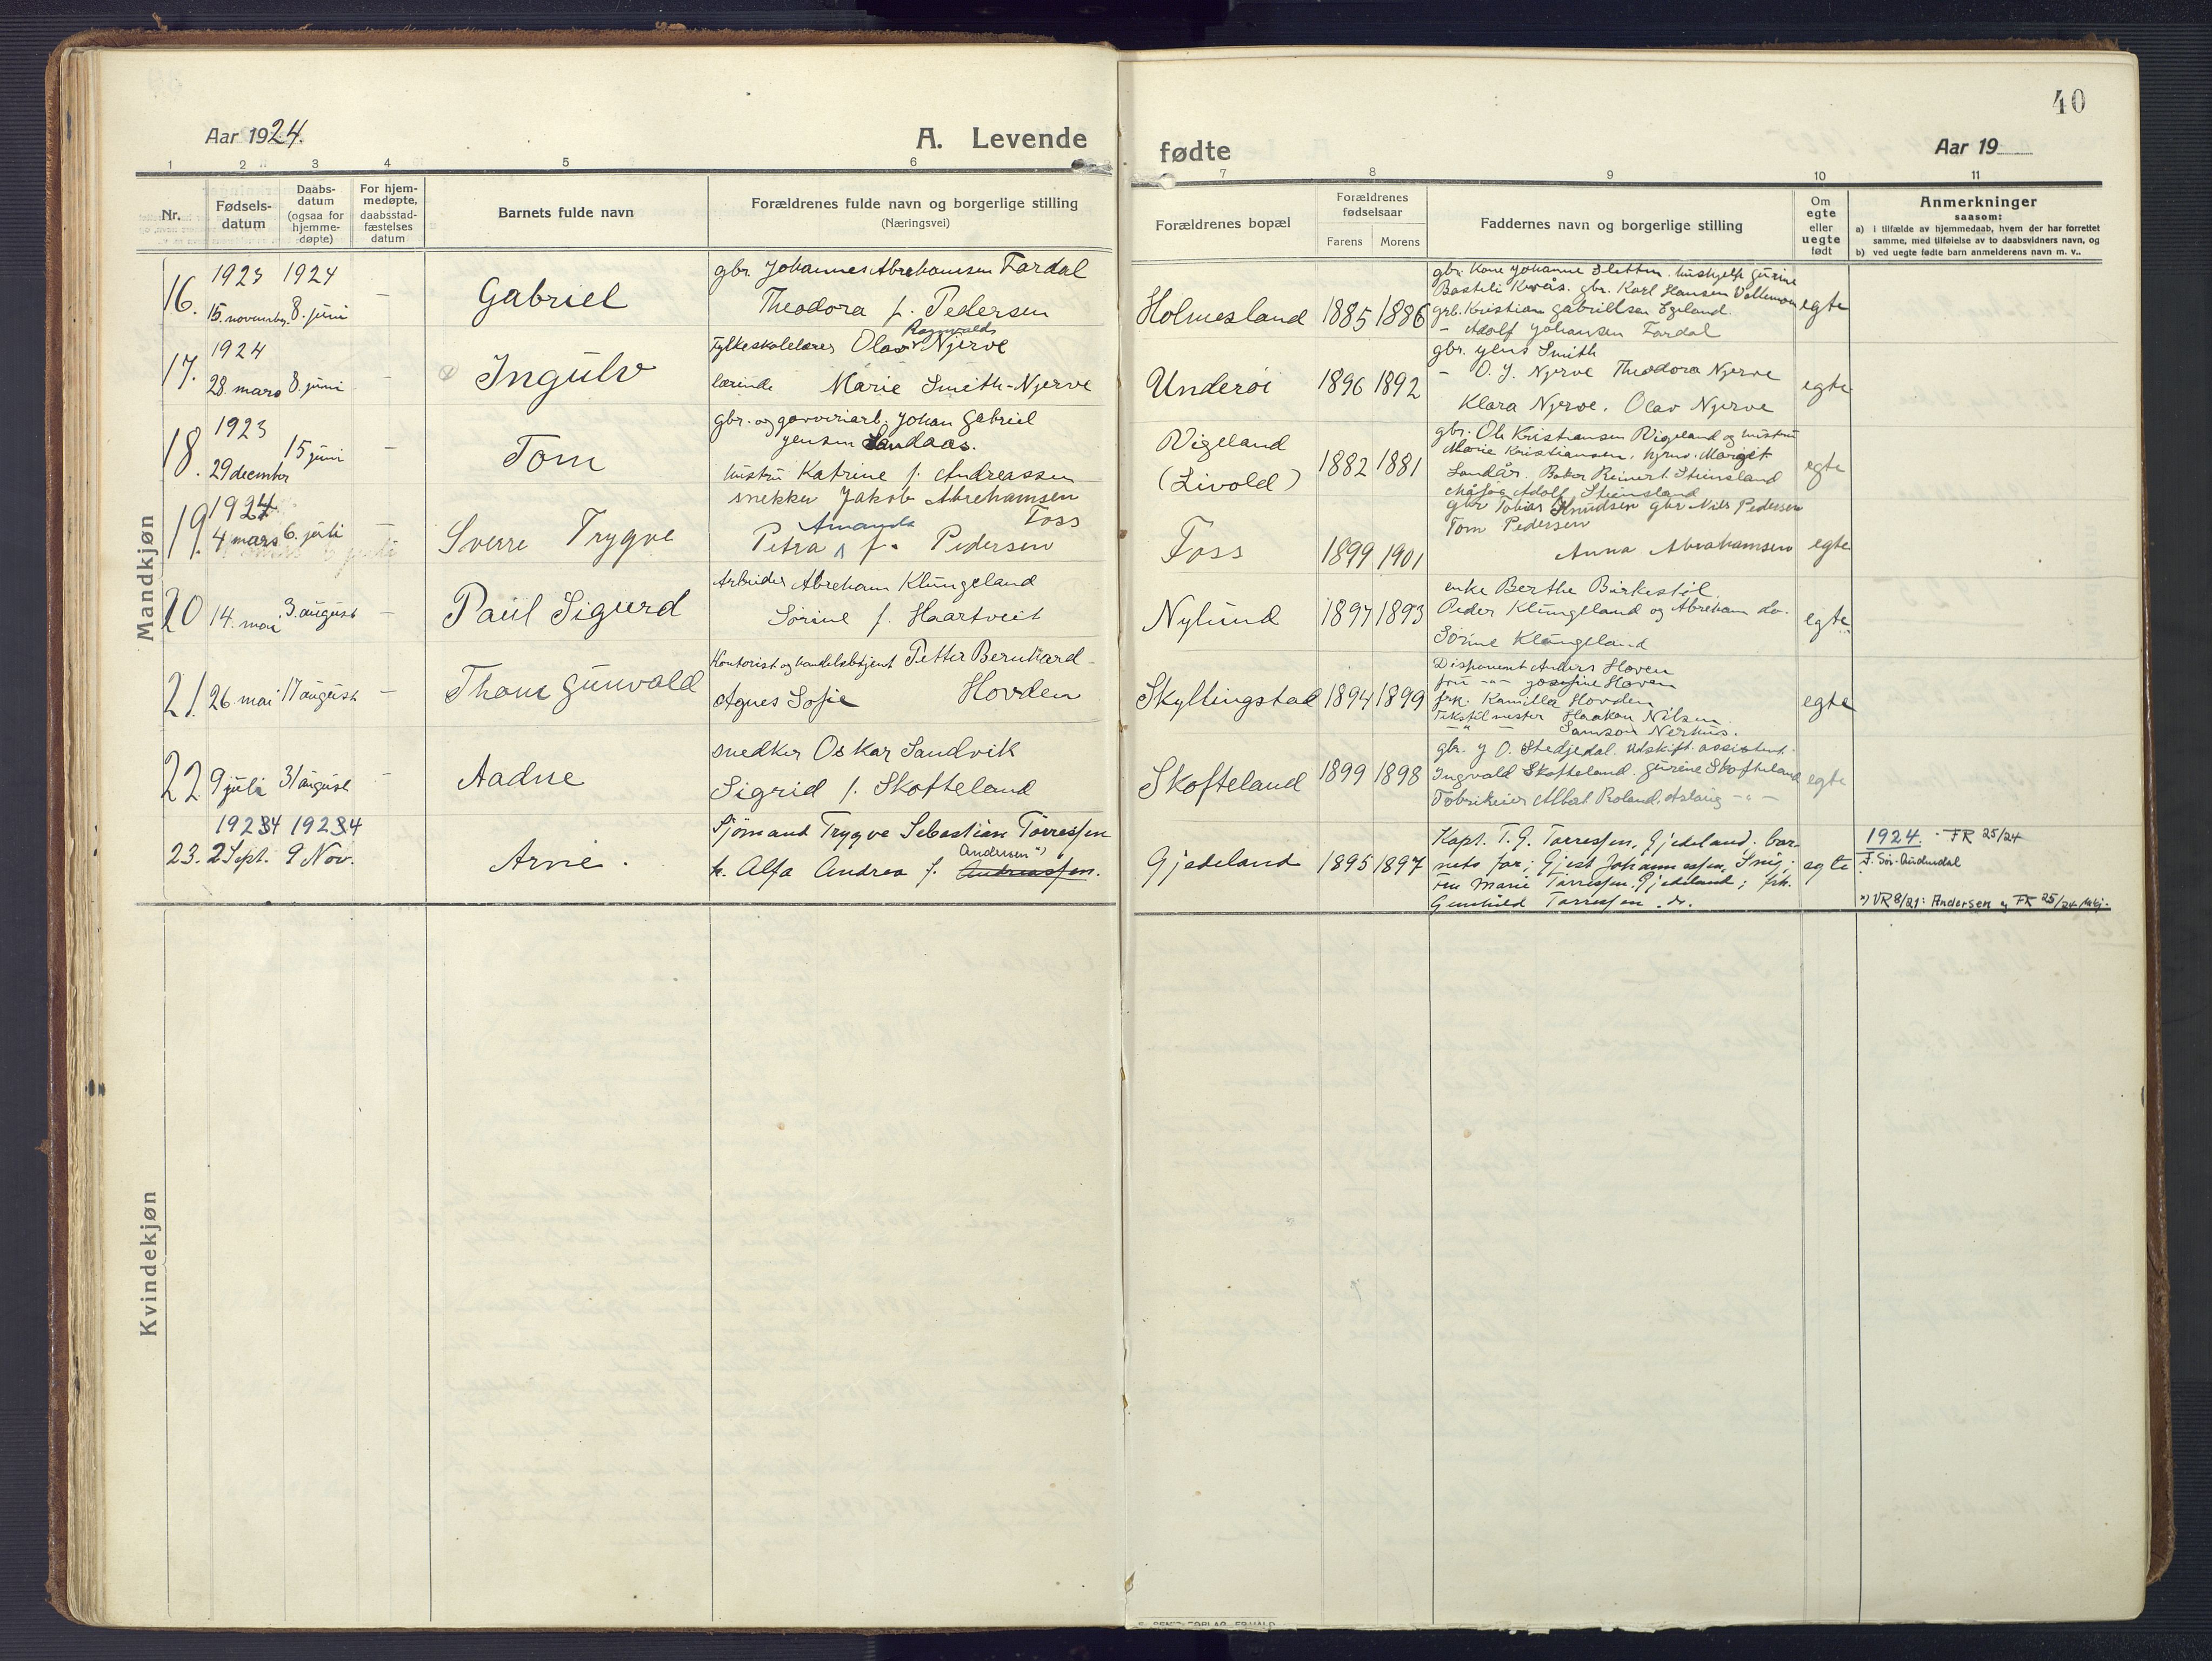 40
Aar 1924.
A. Levende
fødte
Aar 19
1 2 3 4 5 6 7 8 9 10 11
Nr.
Fødsels-
datum
Daabs-
datum
(ogsaa for
hjemme-
døpte)
For hjem-
medøpte,
daabsstad-
fæstelses
datum
Barnets fulde navn
Forældrenes fulde navn og borgerlige stilling
(Næringsvei)
Forældrenes bopæl
Forældrenes
fødselsaar
Farens Morens
Faddernes navn og borgerlige stilling
Om
egte
eller
uegte
født
Anmerkninger
saasom:
a) i tilfælde av hjemmedaab, hvem der har forrettet
samme, med tilføielse av to daabsvidners navn, og
b) ved uegte fødte barn anmelderens navn m. v..
Mandkjøn
16.
1923 1924
15. novembr. 8. juni
-
Gabriel
gbr. Johannes Abrahamsen Fardal
Theodora f. Pedersen
Holmesland
1885 1886
gbr. Kone Johanne Sletten. hushjelp Gurine
Basteli Kvås. gbr. Karl Hansen
grb. Kristian Gabrielsen Egeland.
- Adolf Johansen Fardal
egte
17.
1924
28. mars 8. juni
-
Ingulv
Ragnvalds
Fylkeskolelærer Olav Njerve
lærinde Marie Smith-Njerve
Underøi
1896 1892
gbr. Jens Smith
- O. J. Njerve Theodora Njerve
Klara Njerve. Olav Njerve
egte
18.
1923
29 decembr 15 juni
-
Tom
gbr. og garveriarb. Johan Gabriel
Jensen Landaas.
hustru Katrine f. Andreassen
Vigeland
(Livold)
1882 1881
gbr. Ole Kristiansen Vigeland og hustru
Marie Kristiansen. hjmv. Margit
Landås. Baker Reinert Stiensland
Adolf Stiensland
egte
19.
1924
4 mars 6. juli
-
Sverre Trygve
snekker Jakob Abrehamsen
Foss
Amanda
Petra f. Pedersen
Foss
1899 1901
gbr Tobias Knudsen gbr Nils Pedersen
Tom Pedersen
Anna Abrahamsen
egte
20
14. mai 3. august
-
Paul Sigurd
Arbeider Abreham Klungeland
Sorine f. Haartveit
Nylund
1897 1893
enke Berthe Birkestøl.
Peder Klungeland og Abreham do.
Sorine Klungeland
egte
21.
26. mai 17 august
-
Thom Gunvald
Kontorist og handelsbetjent Petter Bernhard
Agnes Sofie Hovden
Skyllingstad
1894 1899
Disponent Anders Hoven
fru -"- Josefine Hoven
frk. Kamilla Hovden
Tekstilmester Haakon Nilsen.
-"- Samson Nerhus.
egte
22.
9 juli 31 august
-
Aadne
snedker Oskar Sandvik
Sigrid f. Skofteland
Skofteland
1899 1898
gbr. J O. Stedjedal. Utskift. assistent.
Ingvald Skofteland. Gurine Skofteland
Fabrikeier Albert Roland. Aslaug -"-
egte
19234 19234
23. 2 Sept. 9 Nov.
Arne.
Sjømand Trygve Sebastian Tørressen
Andersen *)
h. Alfa Andrea f. Andreassen.
Gjedeland
1895 1897
Kapt. T. G. Tørressen, Gjedeland, bar-
nets far; Gjest Johannessen, Snig;
Fru Marie Tørressen. Gjedeland; frk.
Gunhild Tørressen. ds.
egte
1924. - FR 25/24
F. Sør-Audnedal
*) VR 8/21: Andersen og FR 25/24
Kvindekjøn